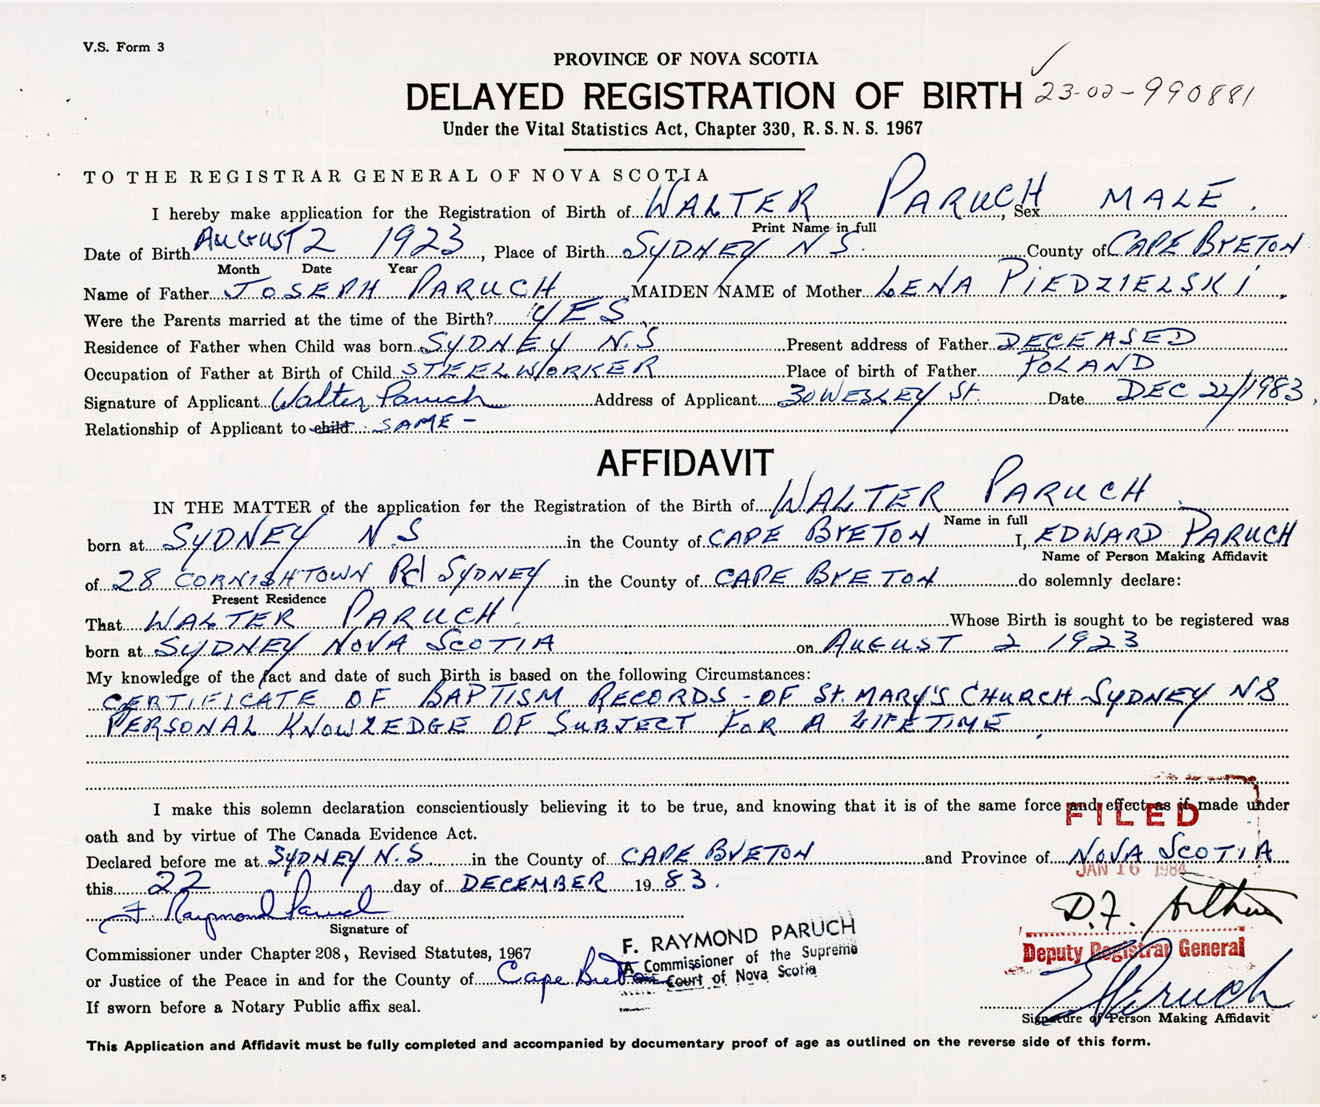 V.S. Form 3
PROVINCE OF NOVA SCOTIA
DELAYED REGISTRATION OF BIRTH ✓ 23-02-990881
Under the Vital Statistics Act, Chapter 330, R. S. N. S. 1967
TO THE REGISTRAR GENERAL OF NOVA SCOTIA
I hereby make application for the Registration of Birth of WALTER PARUCH, Sex MALE.
Print Name in full
Date of Birth AUGUST 2 1923, Place of Birth SYDNEY N S. County of CAPE BRETON
Month Date Year
Name of Father JOSEPH PARUCH MAIDEN NAME of Mother LENA PIEDZIELSKI.
Were the Parents married at the time of the Birth? YES
Residence of Father when Child was born SYDNEY N.S Present address of Father DECEASED
Occupation of Father at Birth of Child STEELWORKER Place of birth of Father POLAND
Signature of Applicant Walter Paruch Address of Applicant 30 WESLEY St. Date DEC 22/1983
Relationship of Applicant to child SAME -
AFFIDAVIT
IN THE MATTER of the application for the Registration of the Birth of WALTER PARUCH
Name in full
born at SYDNEY N.S in the County of CAPE BRETON I, EDWARD PARUCH
Name of Person Making Affidavit
of 28 CORNISHTOWN Rd SYDNEY in the County of CAPE BRETON do solemnly declare:
Present Residence
That WALTER PARUCH. Whose Birth is sought to be registered was
born at SYDNEY NOVA SCOTIA on AUGUST 2 1923
My knowledge of the fact and date of such Birth is based on the following Circumstances:
CERTIFICATE OF BAPTISM RECORDS - OF St. MARY'S CHURCH SYDNEY NS
PERSONAL KNOWLEDGE OF SUBJECT FOR A LIFETIME.
I make this solemn declaration conscientiously believing it to be true, and knowing that it is of the same force and effect as if made under
FILED
oath and by virtue of The Canada Evidence Act.
Declared before me at SYDNEY N.S in the County of CAPE BRETON and Province of NOVA SCOTIA
JAN 16 1984
this 22 day of DECEMBER 1983.
F. Raymond Paruch
D.F. Arthur
Signature of
Deputy Registrar General
F. RAYMOND PARUCH
A Commissioner of the Supreme
Court of Nova Scotia
Commissioner under Chapter 208, Revised Statutes, 1967
or Justice of the Peace in and for the County of Cape Breton
E Paruch
If sworn before a Notary Public affix seal.
Signature of Person Making Affidavit
This Application and Affidavit must be fully completed and accompanied by documentary proof of age as outlined on the reverse side of this form.
5